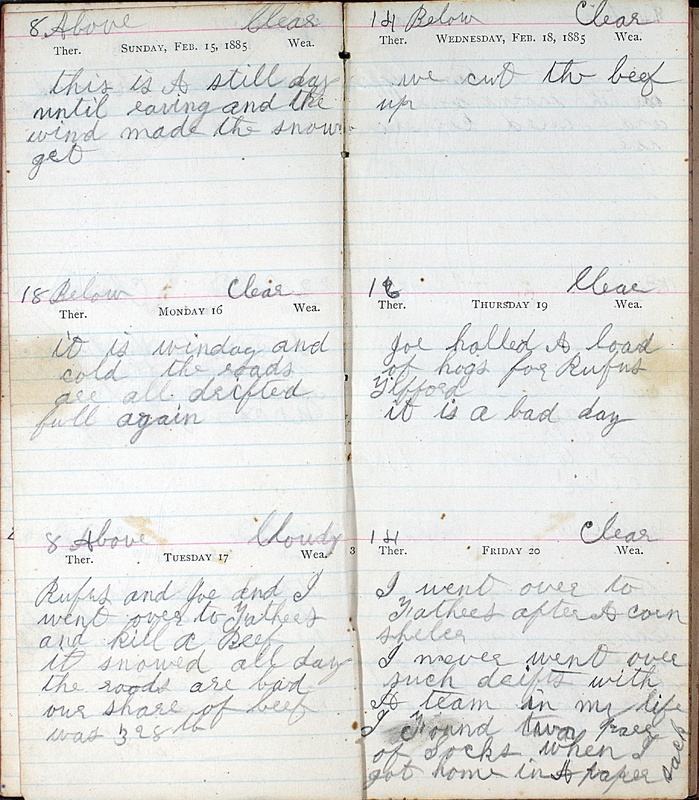 8 Above Clear
Ther. SUNDAY, FEB. 15, 1885 Wea.
this is A still day
until eaving and the
wind made the snow
get
18 Below Clear
Ther. MONDAY 16 Wea.
it is winday and
cold the roads
are all drifted
full again
8 Above Cloudy
Ther. TUESDAY 17 Wea.
Rufus and Joe and I
went over to Fathers
and kill a Beef
it snowed all day
the roads are bad
our share of beef
was 328 lb
14 Below Clear
Ther. WEDNESDAY, FEB. 18, 1885 Wea.
we cut the beef
up
16 Clear
Ther. THURSDAY 19 Wea.
Joe halled A load
of hogs for Rufus
Gifford
it is a bad day
14 Clear
3 Ther. FRIDAY 20 Wea.
I went over to
Fathers after A corn
sheler
I never went over
such drifts with
A team in my life
I found two
of socks when I
got home in A paper
sack